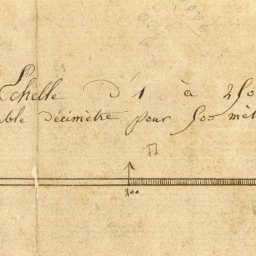 Echelle D'1 à 250
ble décimètre pour 500 mèt
100